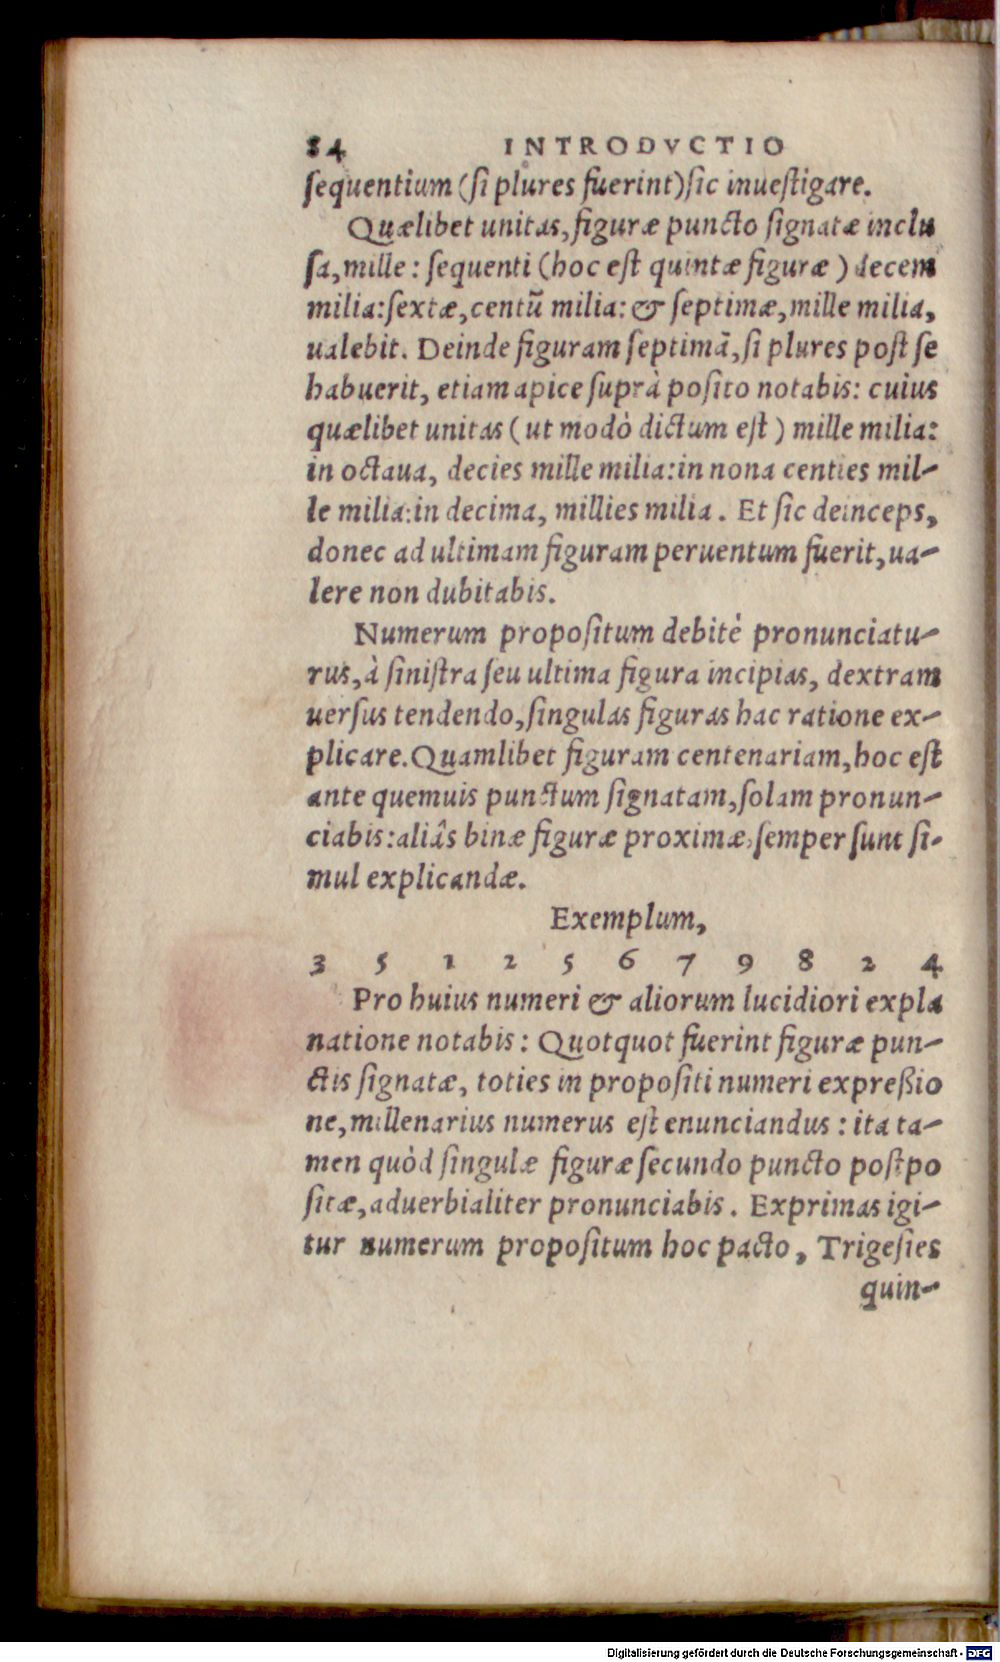 84 INTRODVCTIO
ſequentium (ſi plures fuerint) ſic inueſtigare.
Quælibet unitas, figuræ puncto ſignatæ inclu
ſa, mille: ſequenti (hoc eſt quintæ figuræ) decem
milia: ſextæ, centũ milia: & ſeptimæ, mille milia,
ualebit. Deinde figuram ſeptimã, ſi plures poſt ſe
habuerit, etiam apice ſuprà poſito notabis: cuius
quælibet unitas (ut modò dictum eſt) mille milia:
in octaua, decies mille milia: in nona centies mil-
le milia: in decima, millies milia. Et ſic deinceps,
donec ad ultimam figuram peruentum fuerit, ua-
lere non dubitabis.
Numerum propoſitum debitè pronunciatu-
rus, à ſiniſtra ſeu ultima figura incipias, dextram
uerſus tendendo, ſingulas figuras hac ratione ex-
plicare. Quamlibet figuram centenariam, hoc eſt
ante quemuis punctum ſignatam, ſolam pronun-
ciabis: aliâs binæ figuræ proximæ, ſemper ſunt ſi-
mul explicandæ.
Exemplum,
3 5 1 2 5 6 7 9 8 2 4
Pro huius numeri & aliorum lucidiori expla
natione notabis: Quotquot fuerint figuræ pun-
ctis ſignatæ, toties in propoſiti numeri expreßio
ne, millenarius numerus eſt enunciandus: ita ta-
men quòd ſingulæ figuræ ſecundo puncto poſtpo
ſitæ, aduerbialiter pronunciabis. Exprimas igi-
tur numerum propoſitum hoc pacto, Trigeſies
quin-
Digitalisierung gefördert durch die Deutsche Forschungsgemeinschaft - DFG